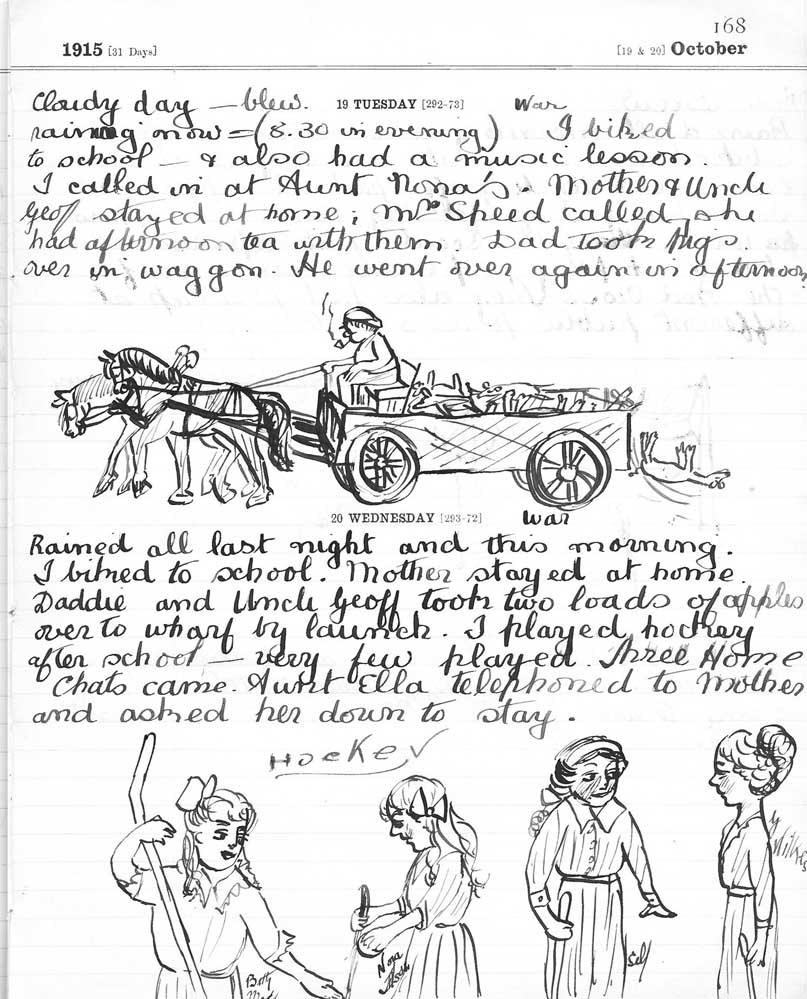 168
1915 [31 Days] [19 & 20] October
Cloudy day — blew. 19 TUESDAY [292-73] War
raining now = (8.30 in evening) I biked
to school — & also had a music lesson.
I called in at Aunt Nona's. Mother & Uncle
Geoff stayed at home; Mrs Speed called, she
had afternoon tea with them. Dad took pigs
over in waggon. He went over again in afternoon
20 WEDNESDAY [293-72] War
Rained all last night and this morning.
I biked to school. Mother stayed at home.
Daddie and Uncle Geoff took two loads of apples
over to wharf by launch. I played hockey
after school — very few played. Three Home
Chats came. Aunt Ella telephoned to Mother
and asked her down to stay.
HOCKEY
Nora
Self